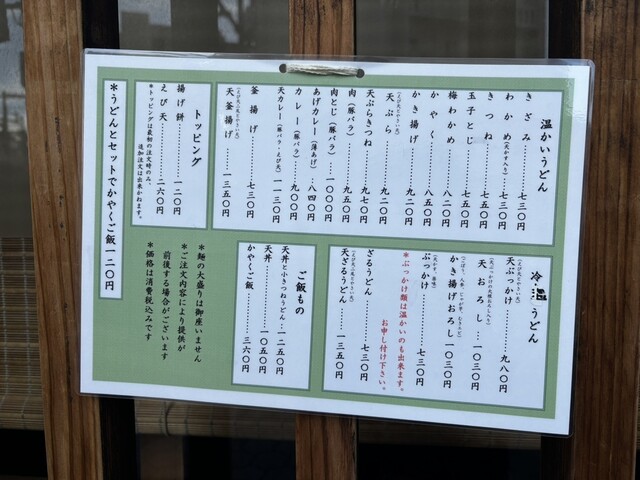 温かいうどん
きざみ……七三〇円
わかめ(天かす入り)……七三〇円
きつね……七五〇円
玉子とじ……七五〇円
梅わかめ……八二〇円
かやく……八五〇円
かき揚げ……九二〇円
天ぷら……九二〇円
天ぷらきつね……九七〇円
肉(豚バラ)……九五〇円
肉とじ(豚バラ)……一〇〇〇円
あげカレー(薄あげ)……八四〇円
カレー(豚バラ)……九〇〇円
天カレー(豚バラ・えび天)……一一三〇円
釜揚げ……七三〇円
天釜揚げ……一三五〇円
トッピング
揚げ餅……一二〇円
えび天……二六〇円
*トッピングは最初の注文時のみ、
追加注文は出来かねます。
*うどんとセットでかやくご飯一二〇円
冷たいうどん
天ぶっかけ……九八〇円
天おろし……一〇三〇円
かき揚げおろし一〇三〇円
ぶっかけ……七三〇円
*ぶっかけ類は温かいのも出来ます。
お申し付け下さい。
ざるうどん……七三〇円
天ざるうどん……一三五〇円
ご飯もの
天丼と小きつねうどん…一二五〇円
天丼……一〇五〇円
かやくご飯……三六〇円
*麺の大盛りは御座いません
*ご注文内容により提供が
前後する場合がございます
*価格は消費税込みです